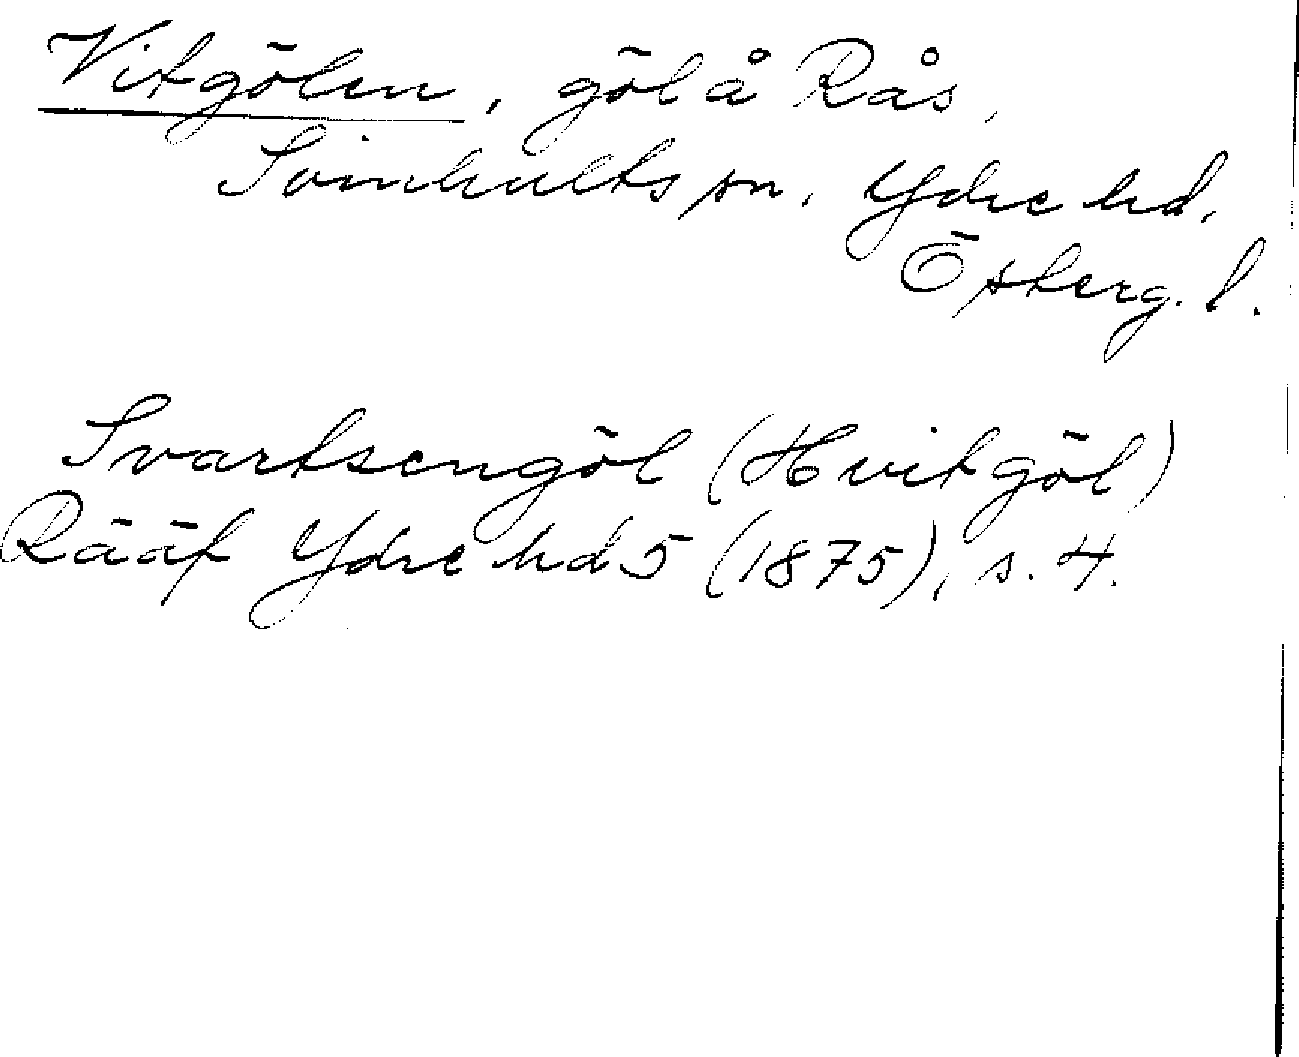 Vitgölen, göl å Rås,
Svinhults sn, Ydre hd,
Österg. l.
Svartsengöl (Hvitgöl)
Rääf Ydre hd 5 (1875), s. 4.